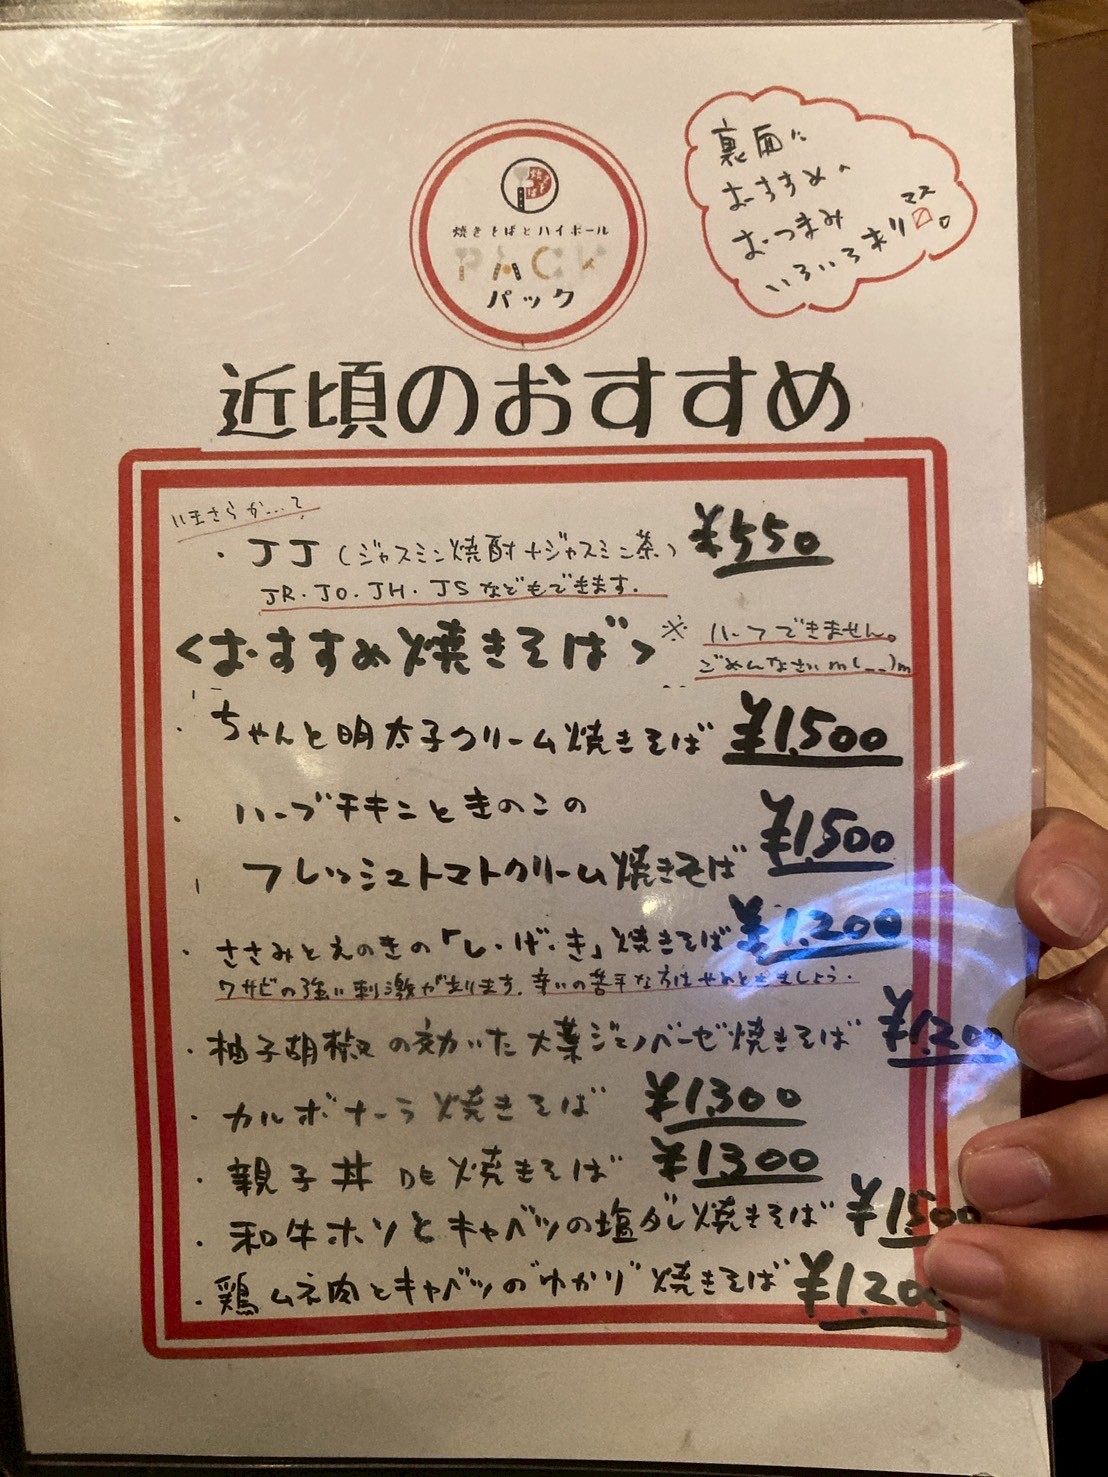 焼きそばとハイボール
PACK
パック
裏面に
おすすめ、
おつまみ
いろいろあり〼。
マス
近頃のおすすめ
いまさらか…?
・JJ(ジャスミン焼酎+ジャスミン茶) ¥550
JR.JO.JH.JSなどもできます.
<おすすめ焼きそば> ※ハーフできません。
ごめんなさいm(__)m
・ちゃんと明太子クリーム焼きそば ¥1,500
・ハーブチキンときのこの
フレッシュトマトクリーム焼きそば ¥1,500
・ささみとえのきの「し・げ・き」焼きそば ¥1,200
ワサビの強い刺激が走ります.辛いの苦手な方はやめときましょう.
・柚子胡椒の効いた大葉ジェノベーゼ焼きそば ¥1,200
・カルボナーラ焼きそば ¥1,300
・親子丼DE焼きそば ¥1,300
・和牛ホソとキャベツの塩ダレ焼きそば ¥1,500
・鶏ムネ肉とキャベツの"ゆかり"焼きそば ¥1,200